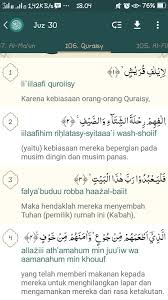 1,42K/s
18.04
Juz 30
107. Al-Ma'un
106. Quraisy
1
لِاِيْلٰفِ قُرَيْشٍۙ ﴿١﴾
li`iilaafi quroiisy
Karena kebiasaan orang-orang Quraisy,
2
اٖلٰفِهِمْ رِحْلَةَ الشِّتَاۤءِ وَالصَّيْفِۚ ﴿٢﴾
iilaafihim riḥlatasy-syitaaa`i wash-shoiif
(yaitu) kebiasaan mereka bepergian pada
musim dingin dan musim panas.
3
فَلْيَعْبُدُوْا رَبَّ هٰذَا الْبَيْتِۙ ﴿٣﴾
falya'buduu robba haażal-baiit
Maka hendaklah mereka menyembah
Tuhan (pemilik) rumah ini (Ka'bah),
4
الَّذِيْٓ اَطْعَمَهُمْ مِّنْ جُوْعٍ وَّاٰمَنَهُمْ مِّنْ خَوْفٍ ﴿٤﴾
allażiii ath'amahum min juu'iw wa
aamanahum min khouuf
yang telah memberi makanan kepada
mereka untuk menghilangkan lapar dan
mengamankan mereka dari rasa ketakutan.